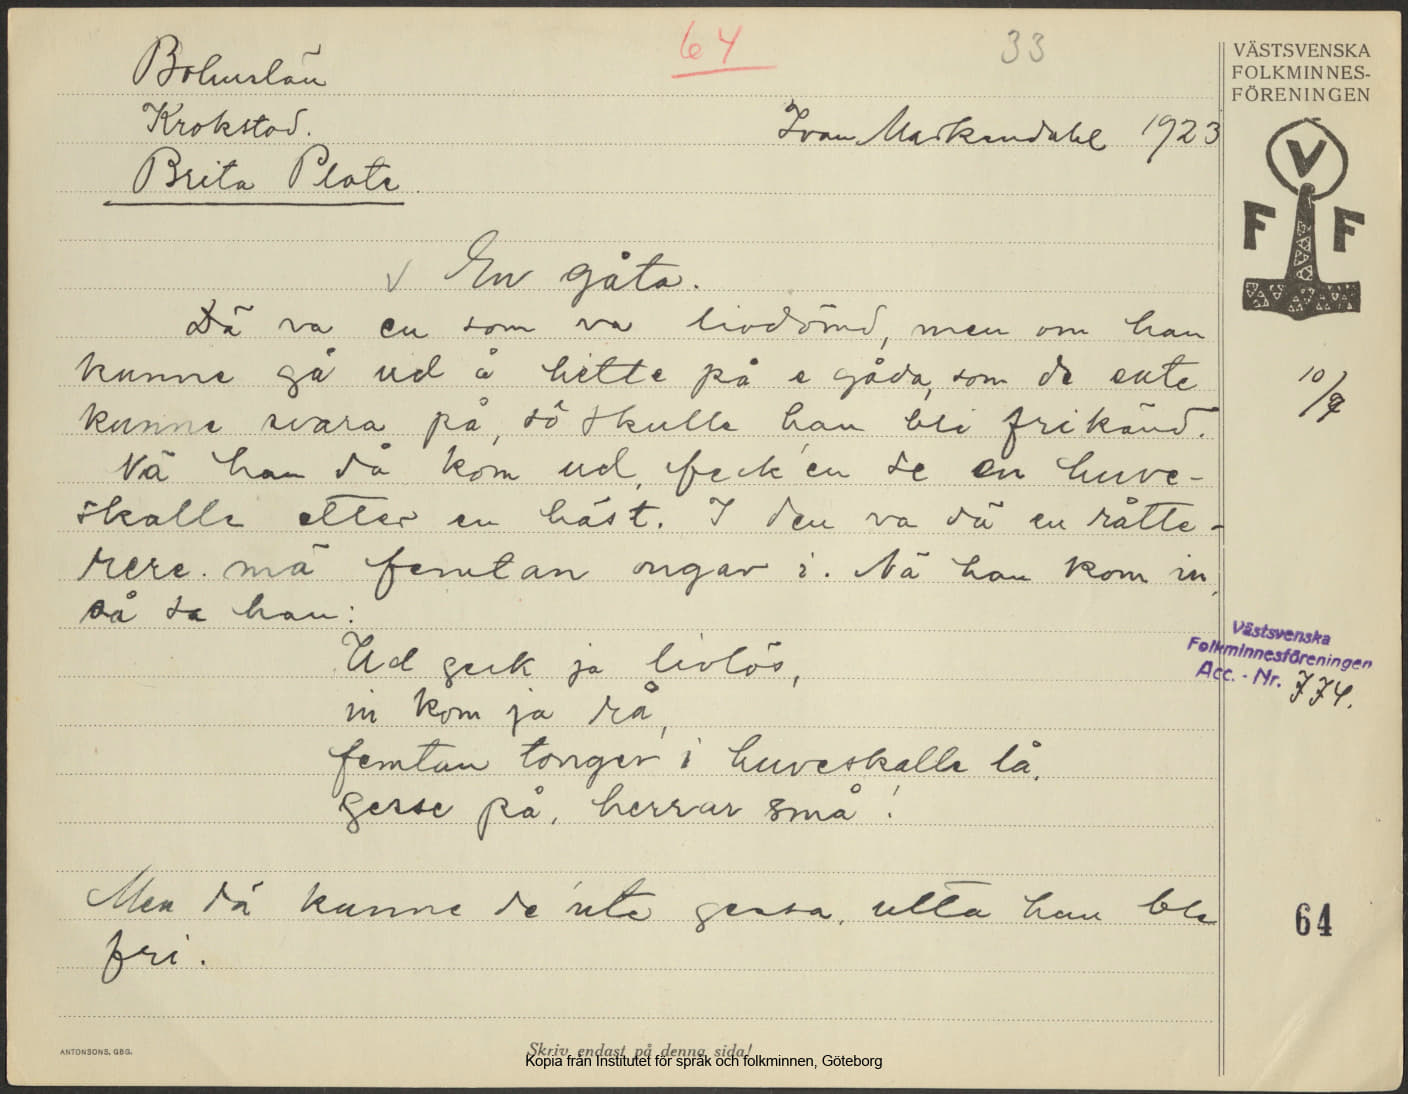 64
33
VÄSTSVENSKA
FOLKMINNES-
FÖRENINGEN
V
F F
Bohuslän
Krokstad.
Ivan Markendahl 1923
Brita Plate.
En gåta.
Dä va en som va livdömd, men om han
kunne gå ud å hitte på e gåda, som de ente
kunne svara på, så skulle han bli frikänd.
Nä han då kom ud, feck en se en huve-
skalle etter en häst. I den va dä en råtte-
rere mä femtan ongar i. Nä han kom in,
så sa han:
Ud geck ja livlös,
in kom ja rå,
femtan tonger i huveskalle lå.
gesse på, herrar små!
Men dä kunne de 'nte gessa, utta han ble
fri.
10/9
Västsvenska
Folkminnesföreningen
Acc. - Nr. 774.
64
ANTONSONS, GBG.
Skriv endast på denna sida!
Kopia från Institutet för språk och folkminnen, Göteborg